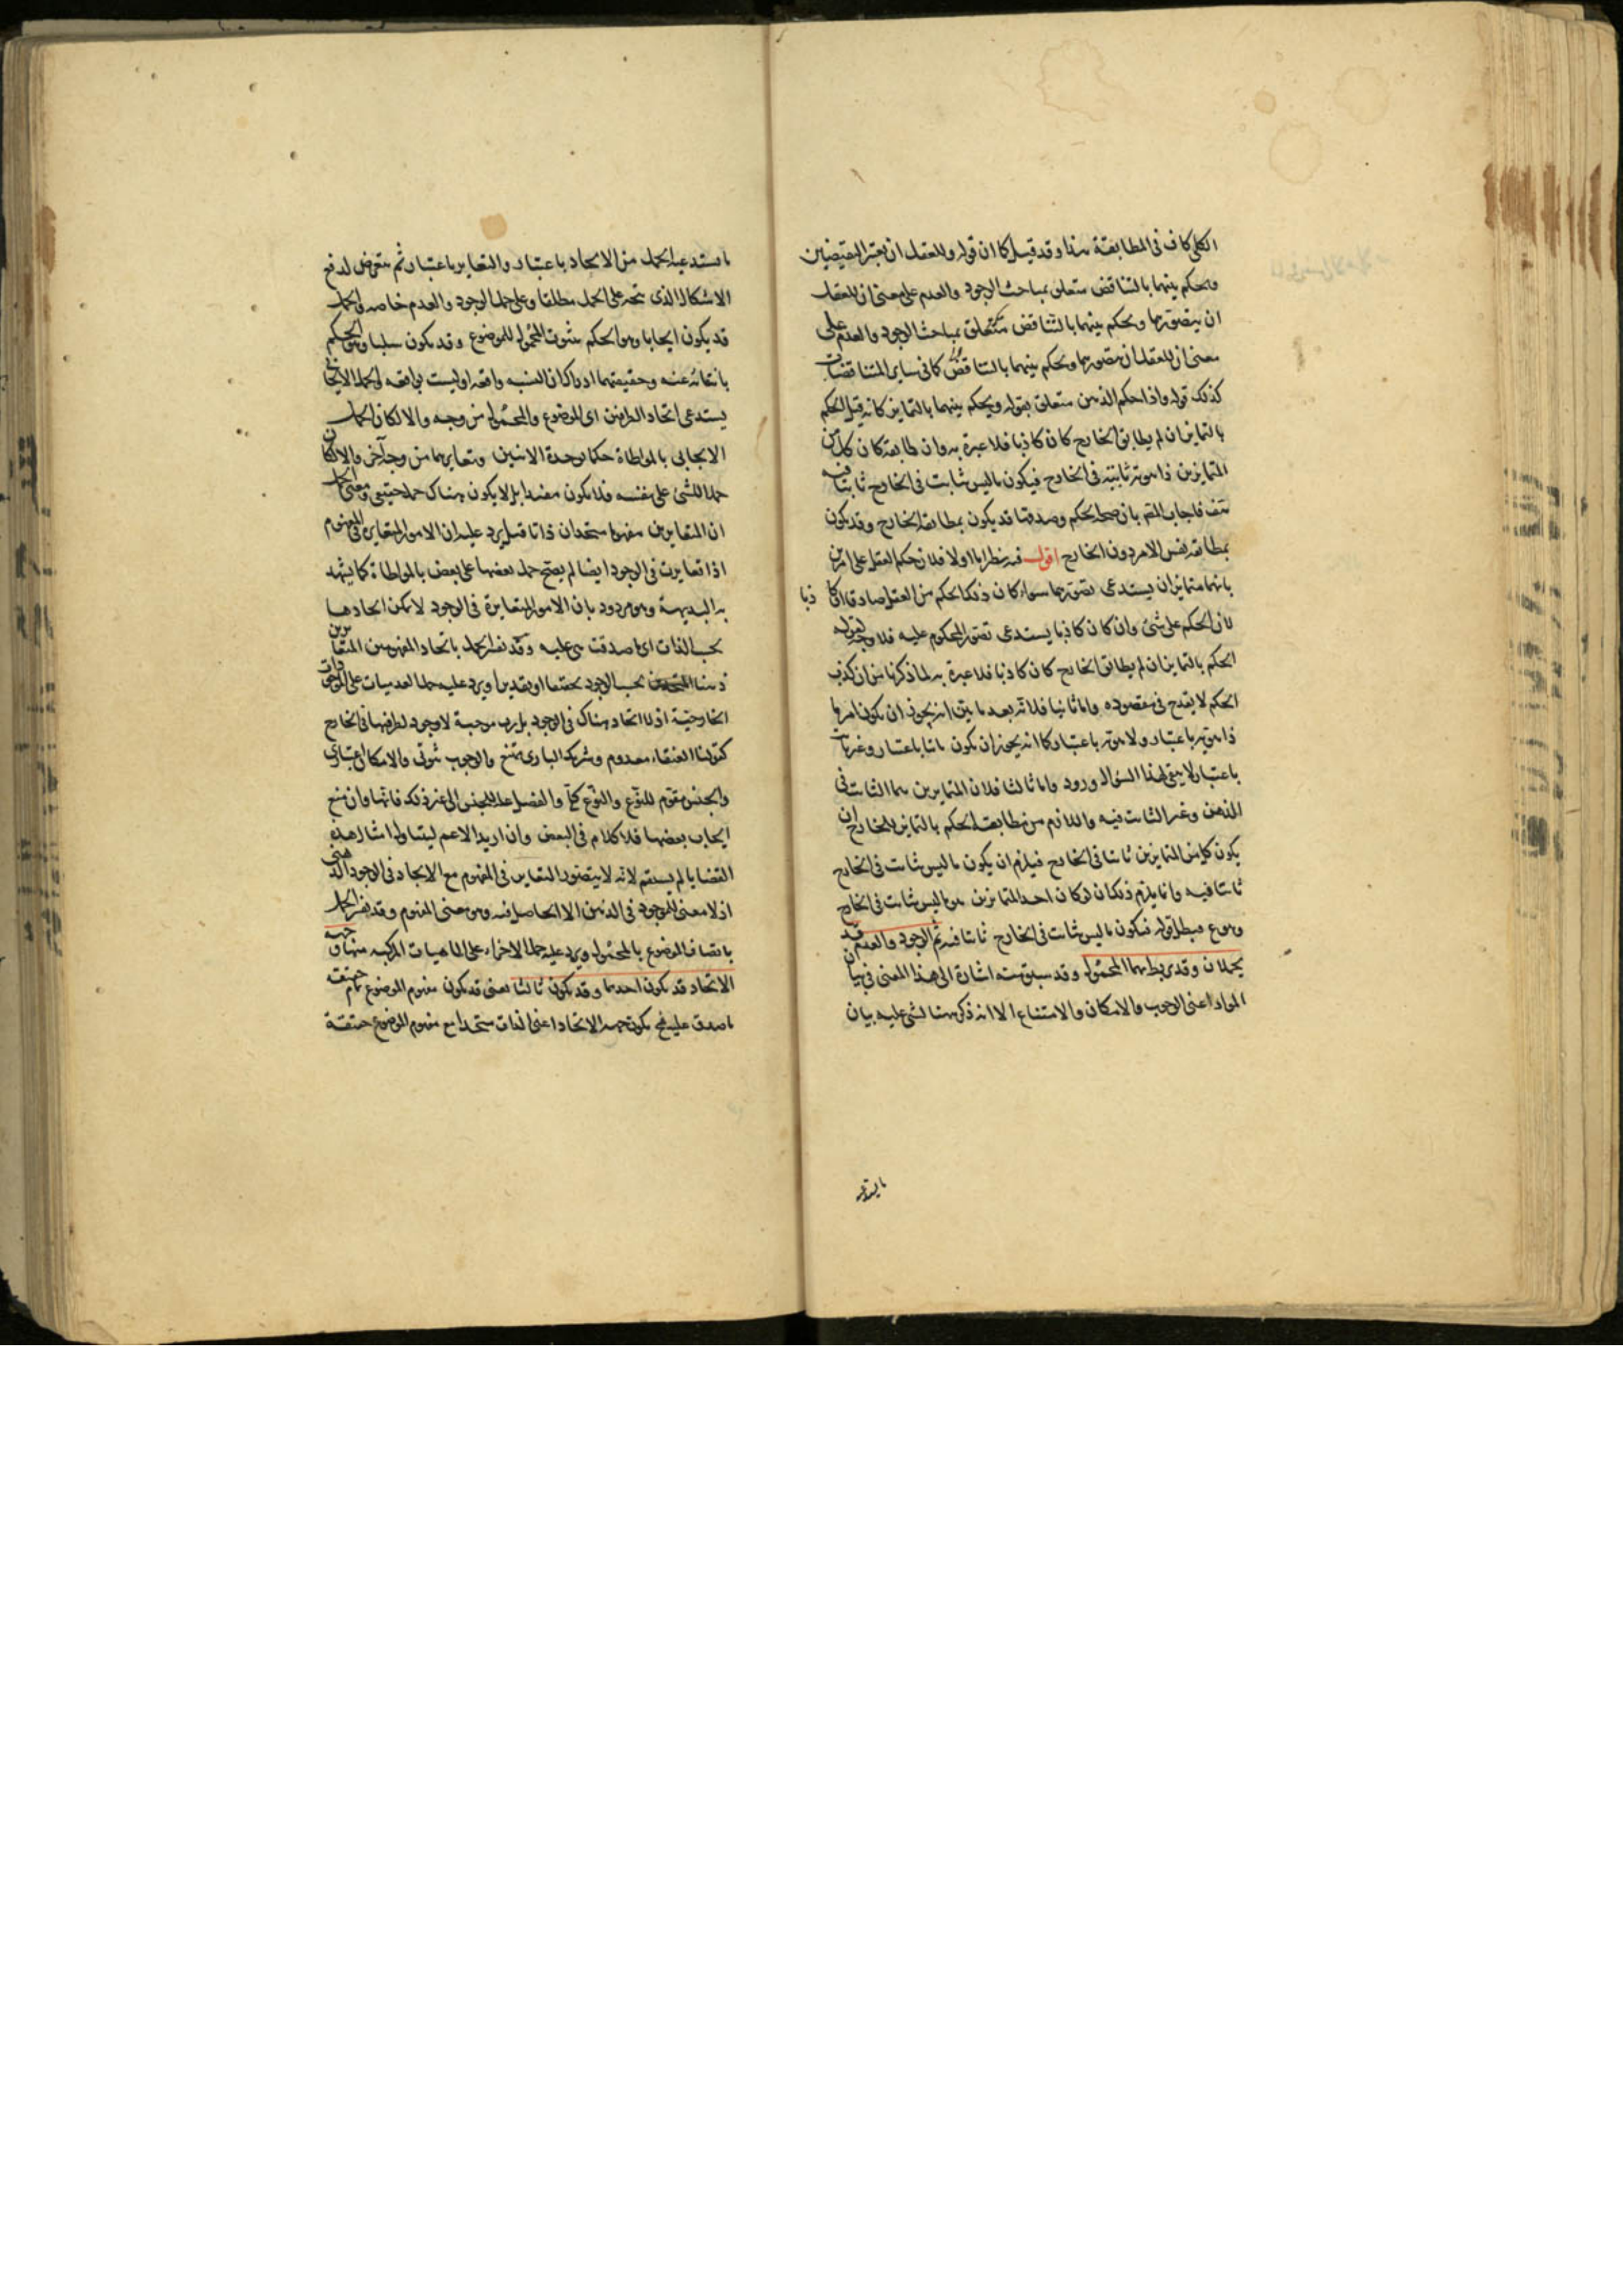 الكلى كاف فى المطابقة هنا وقد قيل كما ان قوله وللعقل ان يعتبر النقيضين
ويحكم بينهما بالتناقض متعلق بمباحث الوجود والعدم على معنى ان للعقل
ان يتصورهما ويحكم بينهما بالتناقض متعلق بمباحث الوجود والعدم على
معنى ان للعقل ان يتصورهما ويحكم بينهما بالتناقض كما فى ساير المتناقضات
كذلك قوله واذا حكم الذهن متعلق بقوله ويحكم بينهما بالتمايز كانه قيل الحكم
بالتمايز ان لم يطابق الخارج كان كاذبا فلا عبرة به وان طابقه كان كل من
المتمايزين ذا هوية ثابتة فى الخارج فيكون ما ليس ثابت فى الخارج ثابتا فيه
فاجاب المصم بان صحة الحكم وصدقها قد يكون بمطابقة الخارج وقد يكون
بمطابقة نفس الامر دون الخارج اقول فيه نظر اما اولا فلان حكم العقل على امرين
بانهما متمايزان يستدعى تصورهما سواء كان ذلك الحكم من العقل صادقا او كاذبا
لان الحكم على شئ وان كان كاذبا يستدعى تصور المحكوم عليه فلا وجه لقوله
الحكم بالتمايز ان لم يطابق الخارج كان كاذبا فلا عبرة به لما ذكرنا من ان كذب
الحكم لا يقدح فى مقصوده واما ثانيا فلانه بعد ما بين انه يجوز ان يكون امر ما
ذا هوية باعتبار ولا هوية باعتبار كما انه يجوز ان يكون ثابتا باعتبار وغير ثابت
باعتبار لا يبقى لهذا السؤال ورود واما ثالثا فلان المتمايزين هما الثابت فى
الذهن وغير الثابت فيه واللازم من مطابقة الحكم بالتمايز للخارج ان
يكون كل من المتمايزين ثابتا فى الخارج فيلزم ان يكون ما ليس ثابت فى الخارج
ثابتا فيه وانما يلزم ذلك ان لو كان احد المتمايزين هو ما ليس ثابت فى الخارج
وهو مم فبطل قوله فيكون ما ليس ثابت فى الخارج ثابتا فيه ثم الوجود والعدم قد
يحملان وقد يربط بهما المحمول وقد سبق منه اشارة الى هذا المعنى فى بيان
المواد اعنى الوجوب والامكان والامتناع الا انه ذكر هنا ليبنى عليه بيان
ما يستدعيه
ما يستدعيه الحمل من الاتحاد باعتبار والتغاير باعتبار ثم يتعرض لدفع
الاشكال الذى يتجه على الحمل مطلقا وعلى حمل الوجود والعدم خاصه والحمل
قد يكون ايجابا وهو الحكم بثبوت المحمول للموضوع وقد يكون سلبا وهو الحكم
بانتفائه عنه وحقيقتهما ادراك ان النسبه واقعه او ليست بواقعه والحمل الايجابى
يستدعى اتحاد الطرفين اى الموضوع والمحمول من وجه والا لكان الحمل
الايجابى بالمواطاة حكما بوحدة الاثنين وتغايرهما من وجه آخر والا لكان
حملا للشئ على نفسه فلا يكون مفيدا بل لا يكون هناك حمل حقيقى ومعنى الحمل
ان المتغايرين مفهوما متحدان ذاتا قيل يرد عليه ان الامور المتغايرة فى المفهوم
اذا تغايرت فى الوجود ايضا لم يصح حمل بعضها على بعض بالمواطاة كما يشهد
به البديهة وهو مردود بان الامور المتغايرة فى الوجود لا يمكن اتحادها
بحسب الذات اى ما صدقت هى عليه وقد يفسر الحمل باتحاد المفهومين المتغايرين
ذهنا بحسب الوجود تحقيقا او تقديرا ويرد عليه حمل العدميات على الموجودات
الخارجية اذ لا اتحاد هناك فى الوجود بل رب موجبة لا وجود لطرفيها فى الخارج
كقولنا العنقاء معدوم وشريك البارى ممتنع والوجوب ثبوتى والامكان اعتبارى
والجنس مقوم للنوع والنوع كلى والفصل علة للجنس الى غير ذلك فانها وان منع
ايجاب بعضها فلا كلام فى البعض وان اريد الاعم ليتناول امثال هذه
القضايا لم يستقم لانه لا يتصور التغاير فى المفهوم مع الاتحاد فى الوجود الذهنى
اذ لا معنى للموجود فى الذهن الا الحاصل فيه وهو معنى المفهوم وقد يفسر الحمل
باتصاف الموضوع بالمحمول ويرد عليه حمل الاجزاء على الماهيات المركبه منها وجهه
الاتحاد قد يكون احدهما وقد يكون ثالثا يعنى قد يكون مفهوم الموضوع تمام حقيقة
ما صدق عليه فح يكون جهة الاتحاد اعنى الذات متحدا مع مفهوم الموضوع حقيقة